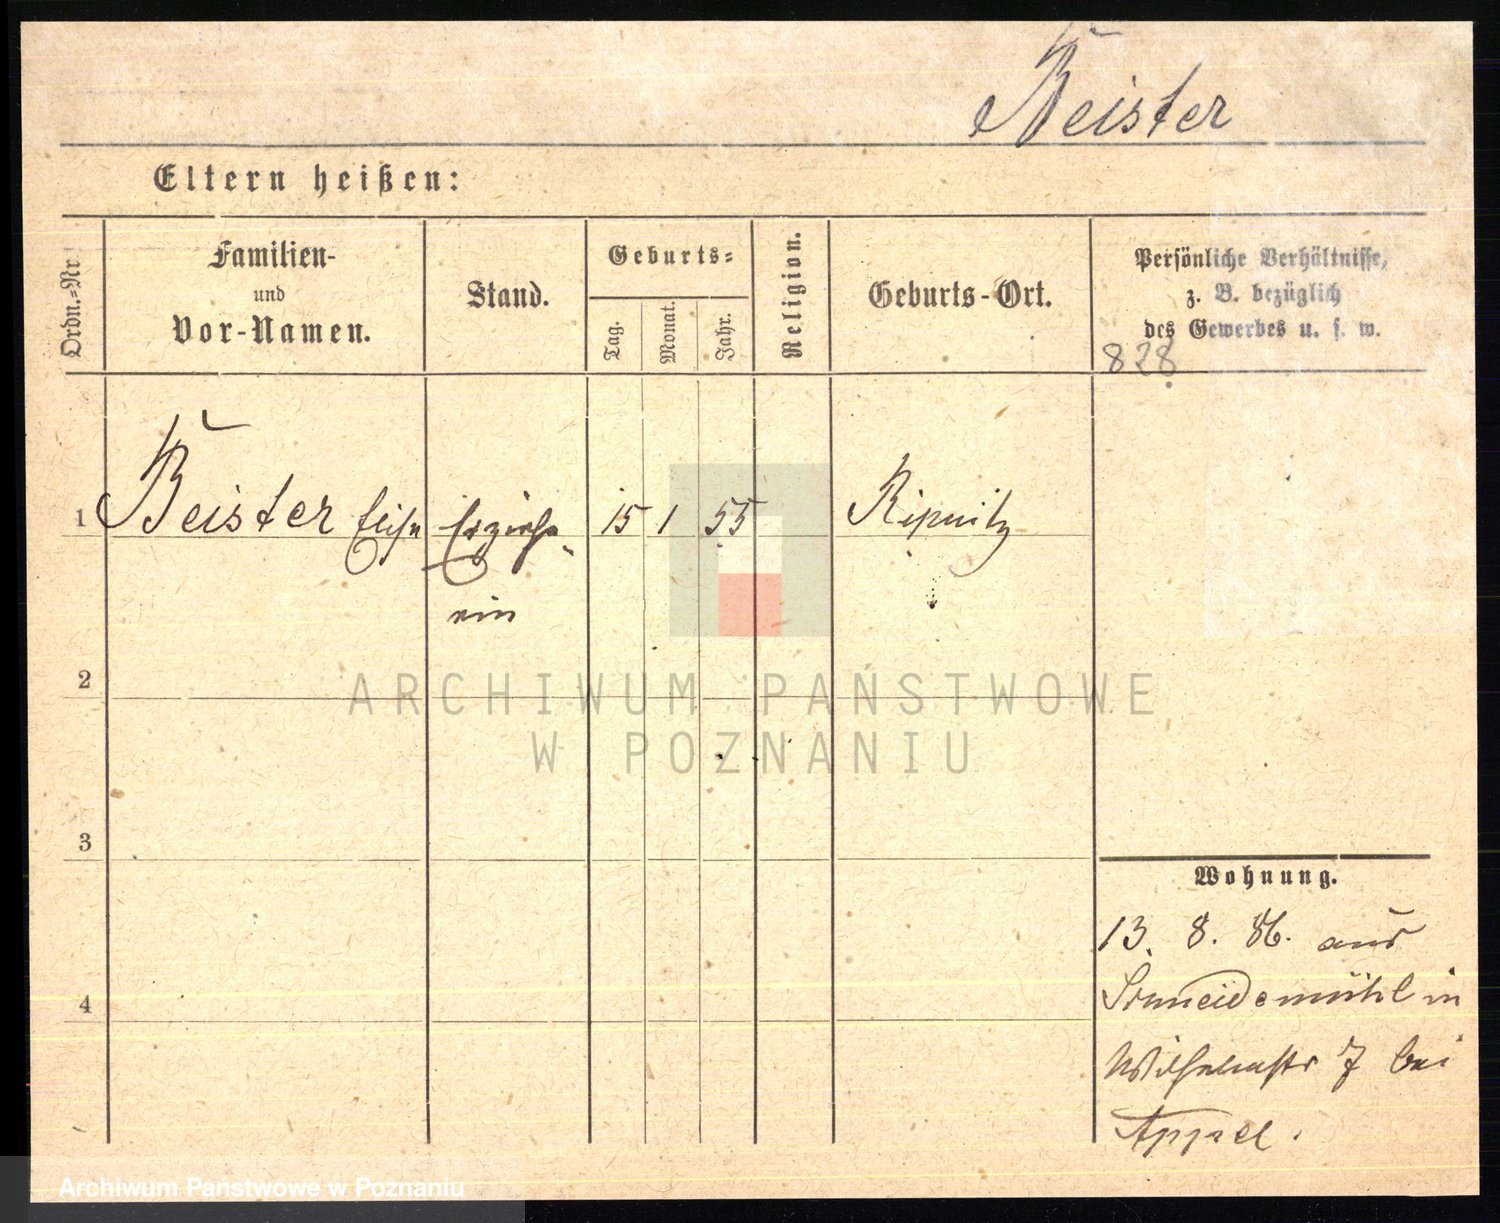 Beister
Eltern heißen:
Ordn.-Nr.
Familien-
und
Vor-Namen.
Stand.
Geburts-
Tag.
Monat.
Jahr.
Religion.
Geburts-Ort.
Persönliche Verhältnisse,
z. B. bezüglich
des Gewerbes u. s. w.
828
1 Beister Elise Erziehe- 15 1 55 Ripnitz
rin
2
ARCHIWUM PAŃSTWOWE
W POZNANIU
3
Wohnung.
13. 8. 86. aus
4
Schneidemühl in
Wilhelmstr 7 bei
Appel.
Archiwum Państwowe w Poznaniu